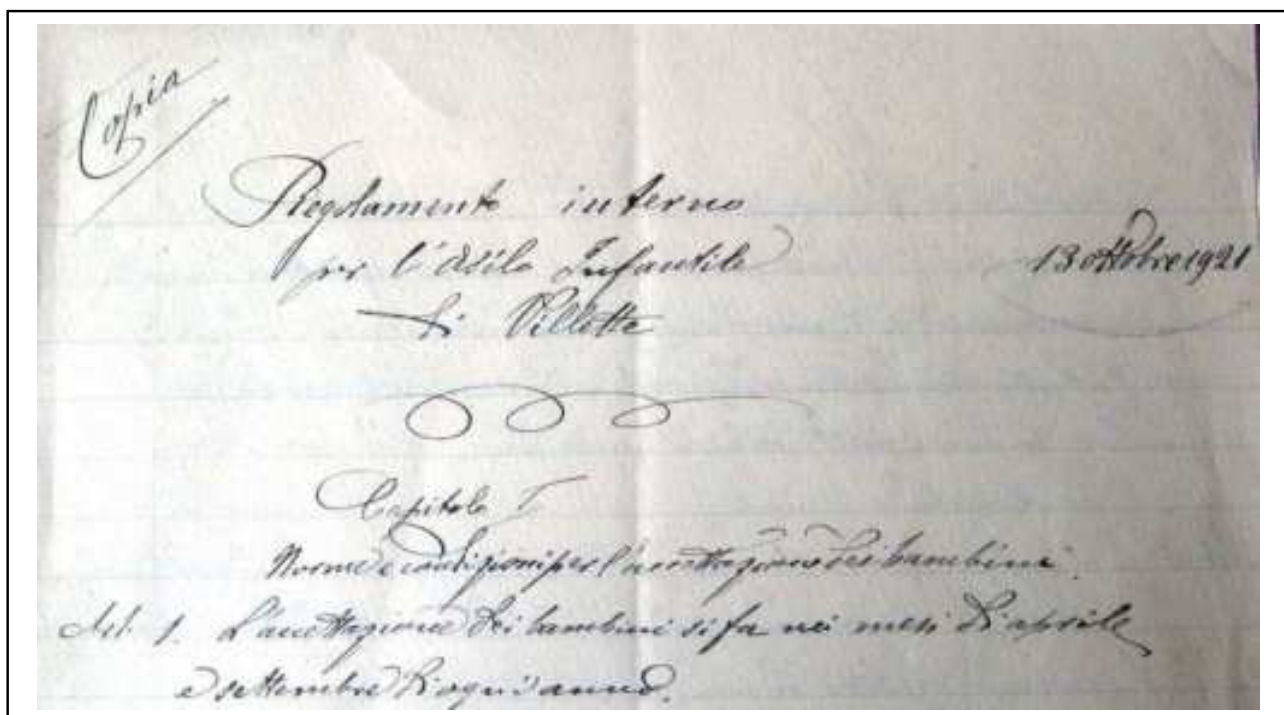 Copia
Regolamento interno
per l'Asilo Infantile
di Villette
13 ottobre 1921
Capitolo I
Norme e condizioni per l'accettazione dei bambini.
Art. 1. L'accettazione dei bambini si fa nei mesi di aprile
e settembre di ogni anno.